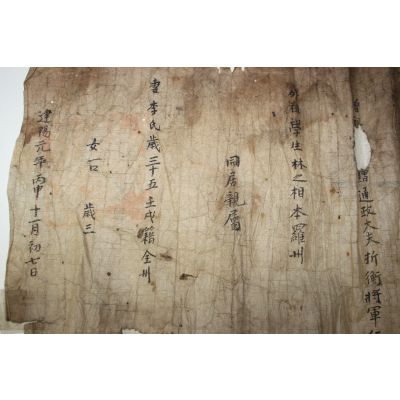 贈通政大夫折衝將軍
外祖學生林之相本羅州
同居親屬
妻李氏歲三十五壬戌籍全州
女一 歲三
建陽元年丙申十一月初七日